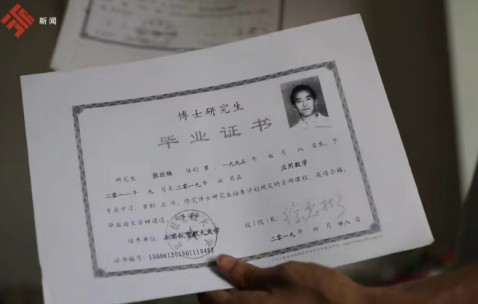 新闻
博士研究生
毕业证书
研究生 张 性别 男 一九九五 年 月 八 日生，于
二〇一一 年 九 月至二〇一九年 月在 应用数学
专业学习，学制 三 年，修完博士研究生培养计划规定的全部课程，成绩合格，
毕业论文答辩通过。
培养单位： 航空航天大学 校（院、所）长
证书编号： 二〇一九年 月 廿八 日